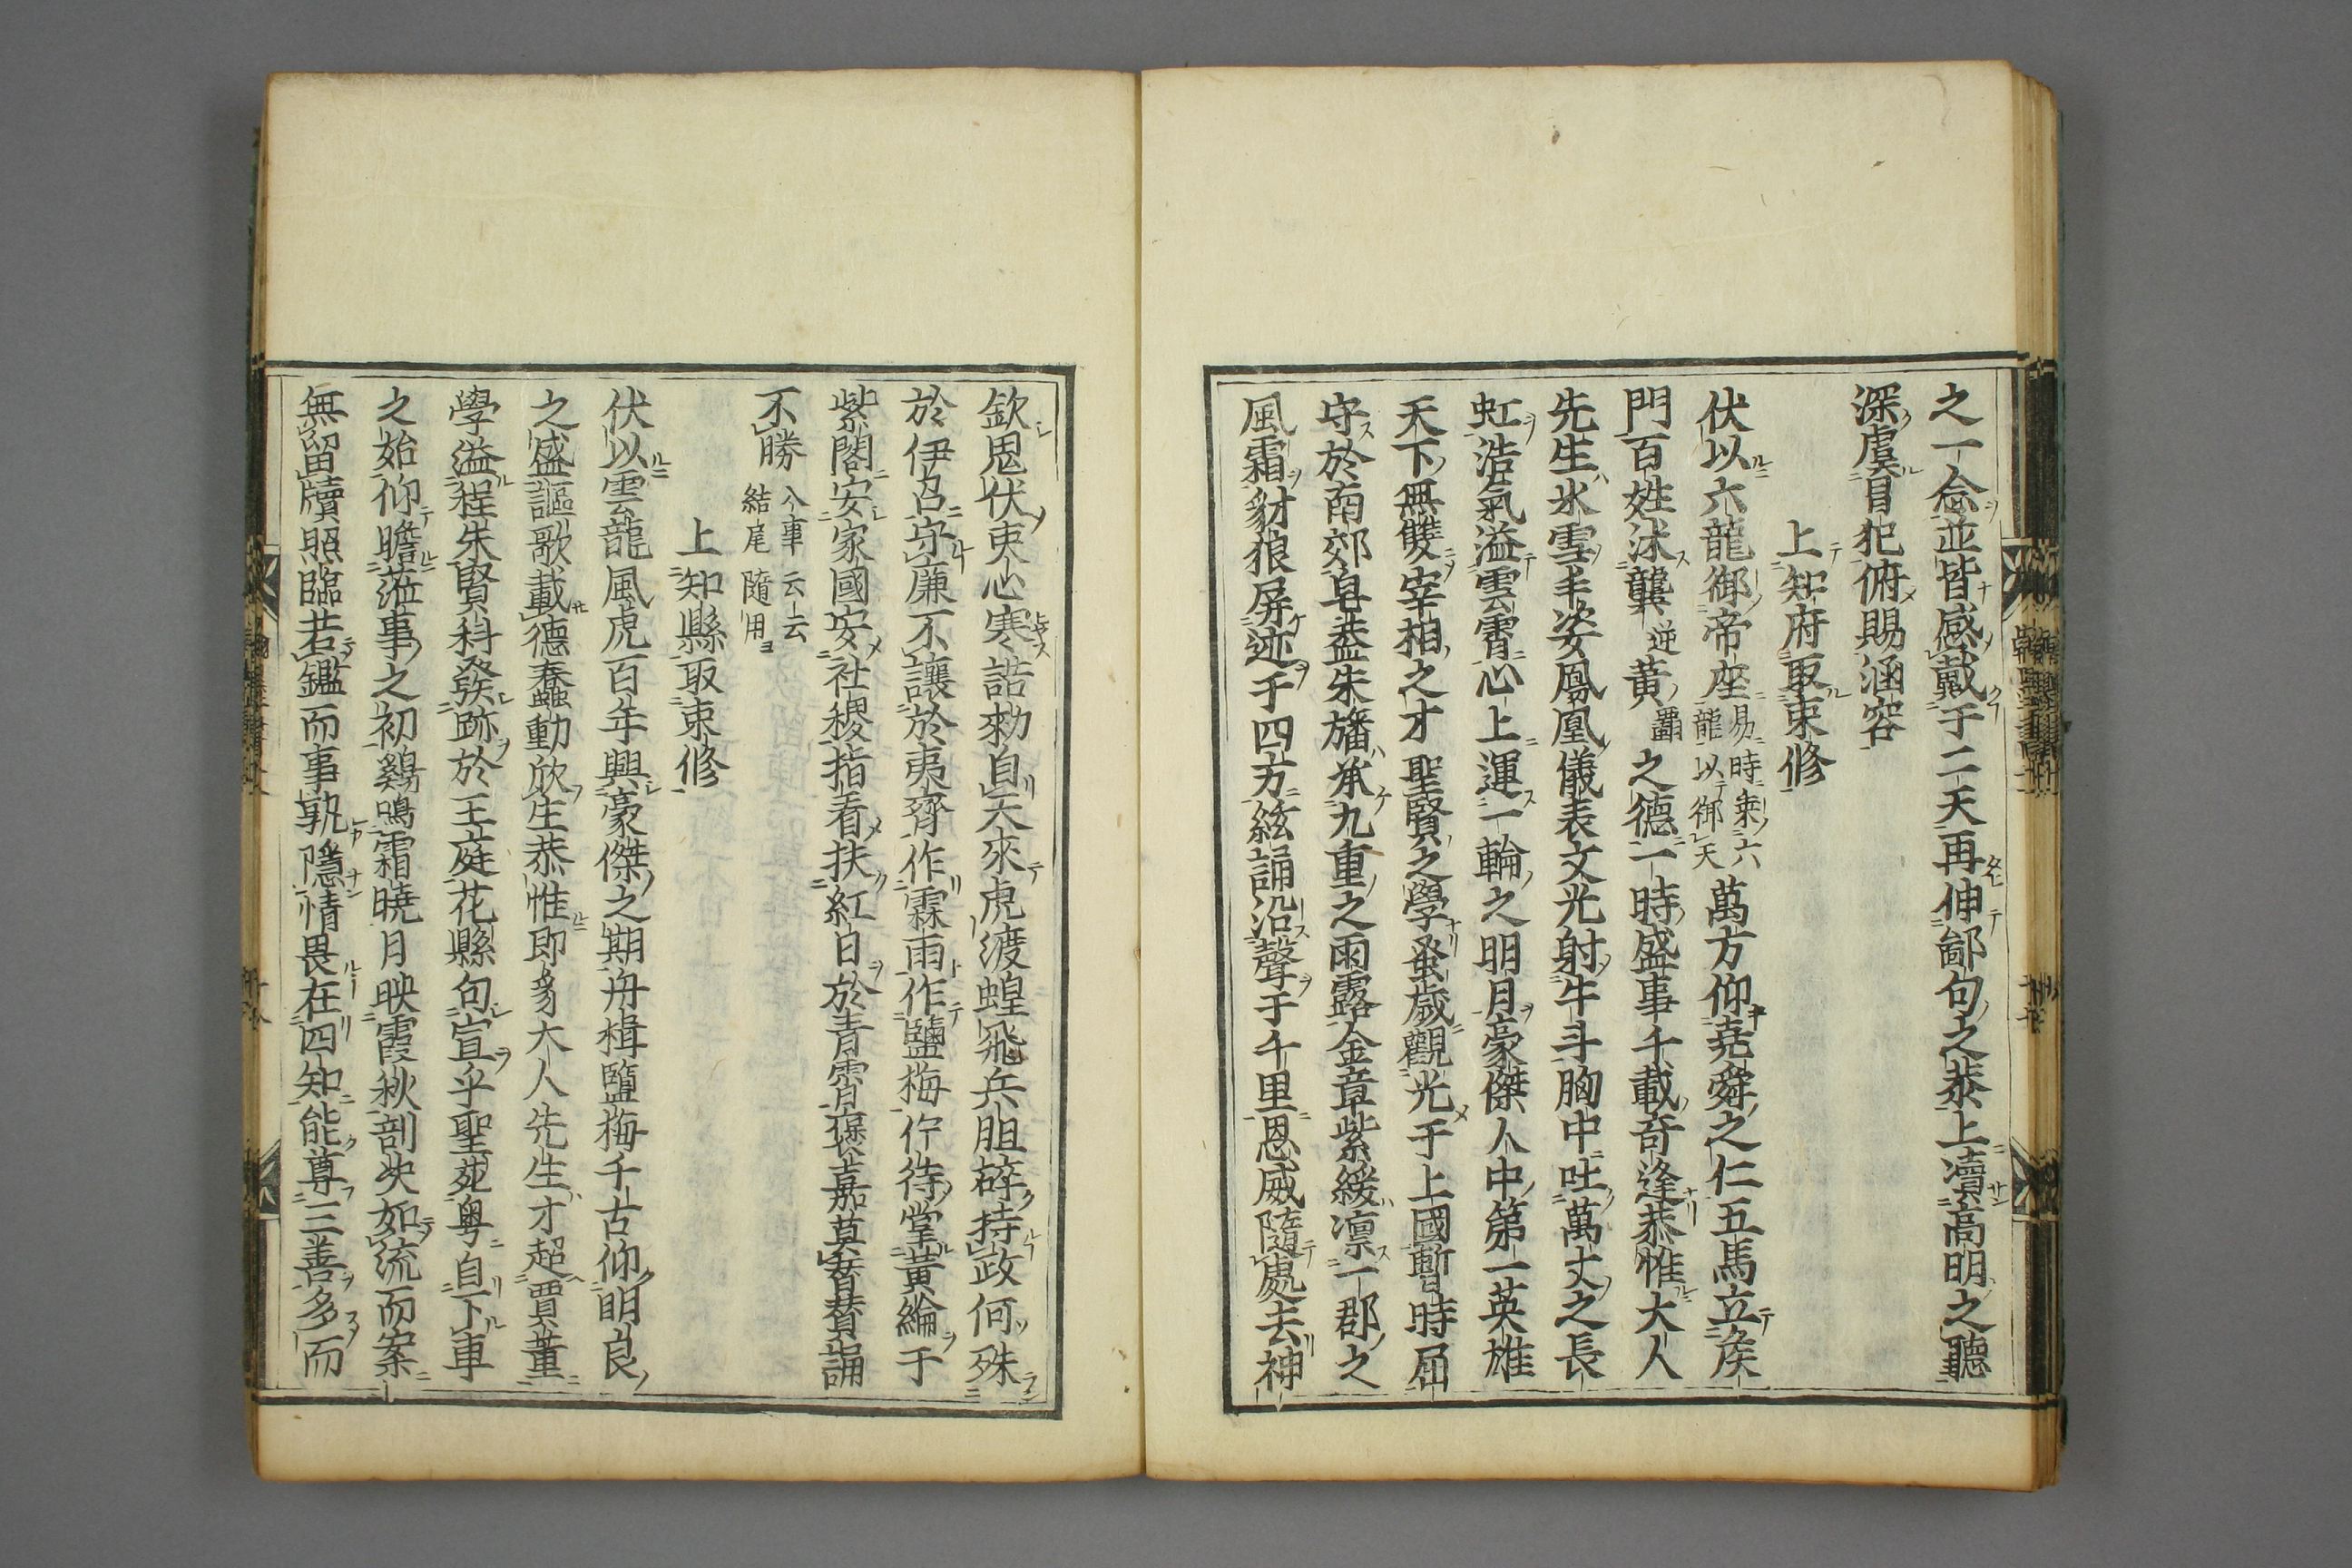 之一念並皆感戴于二天再伸鄙句之恭上凟高明之聽
深虞冐犯俯賜涵容
上知府取束修
伏以六龍御帝座易時乘六龍以御天萬方仰堯舜之仁五馬立侯
門百姓沐龔遂黄霸之德一時盛事千載奇逢恭惟大人
先生氷雪丰姿鳳凰儀表文光射牛斗胸中吐萬丈之長
虹浩氣溢雲霄心上運一輪之明月豪傑人中第一英雄
天下無雙宰相之才聖賢之學蚤歲觀光于上國暫時屈
守於南郊皁葢朱旛承九重之雨露金章紫綬凛一郡之
風霜豺狼屏迹于四方絃誦沿聲于千里恩威隨處去神
欽鬼伏吏心寒誥勑自天來虎渡蝗飛兵胆碎持政何殊
於伊召守廉不讓於夷齊作霖雨作鹽梅佇待掌黃綸于
紫閣安家國安社稷指看扶紅日於青霄褒嘉莫罄賛誦
不勝入事云云結尾隨用
上知縣取束修
伏以雲龍風虎百年興豪傑之期舟楫鹽梅千古仰明良
之盛謳歌載德蠢動欣生恭惟即豸大人先生才超賈董
學溢程朱賢科發跡於王庭花縣句宣乎聖苑粤自下車
之始仰瞻蒞事之初鷄鳴霜曉月映霞秋剖决如流而案
無留牘照臨若鑑而事孰隱情畏在四知能尊三善多而